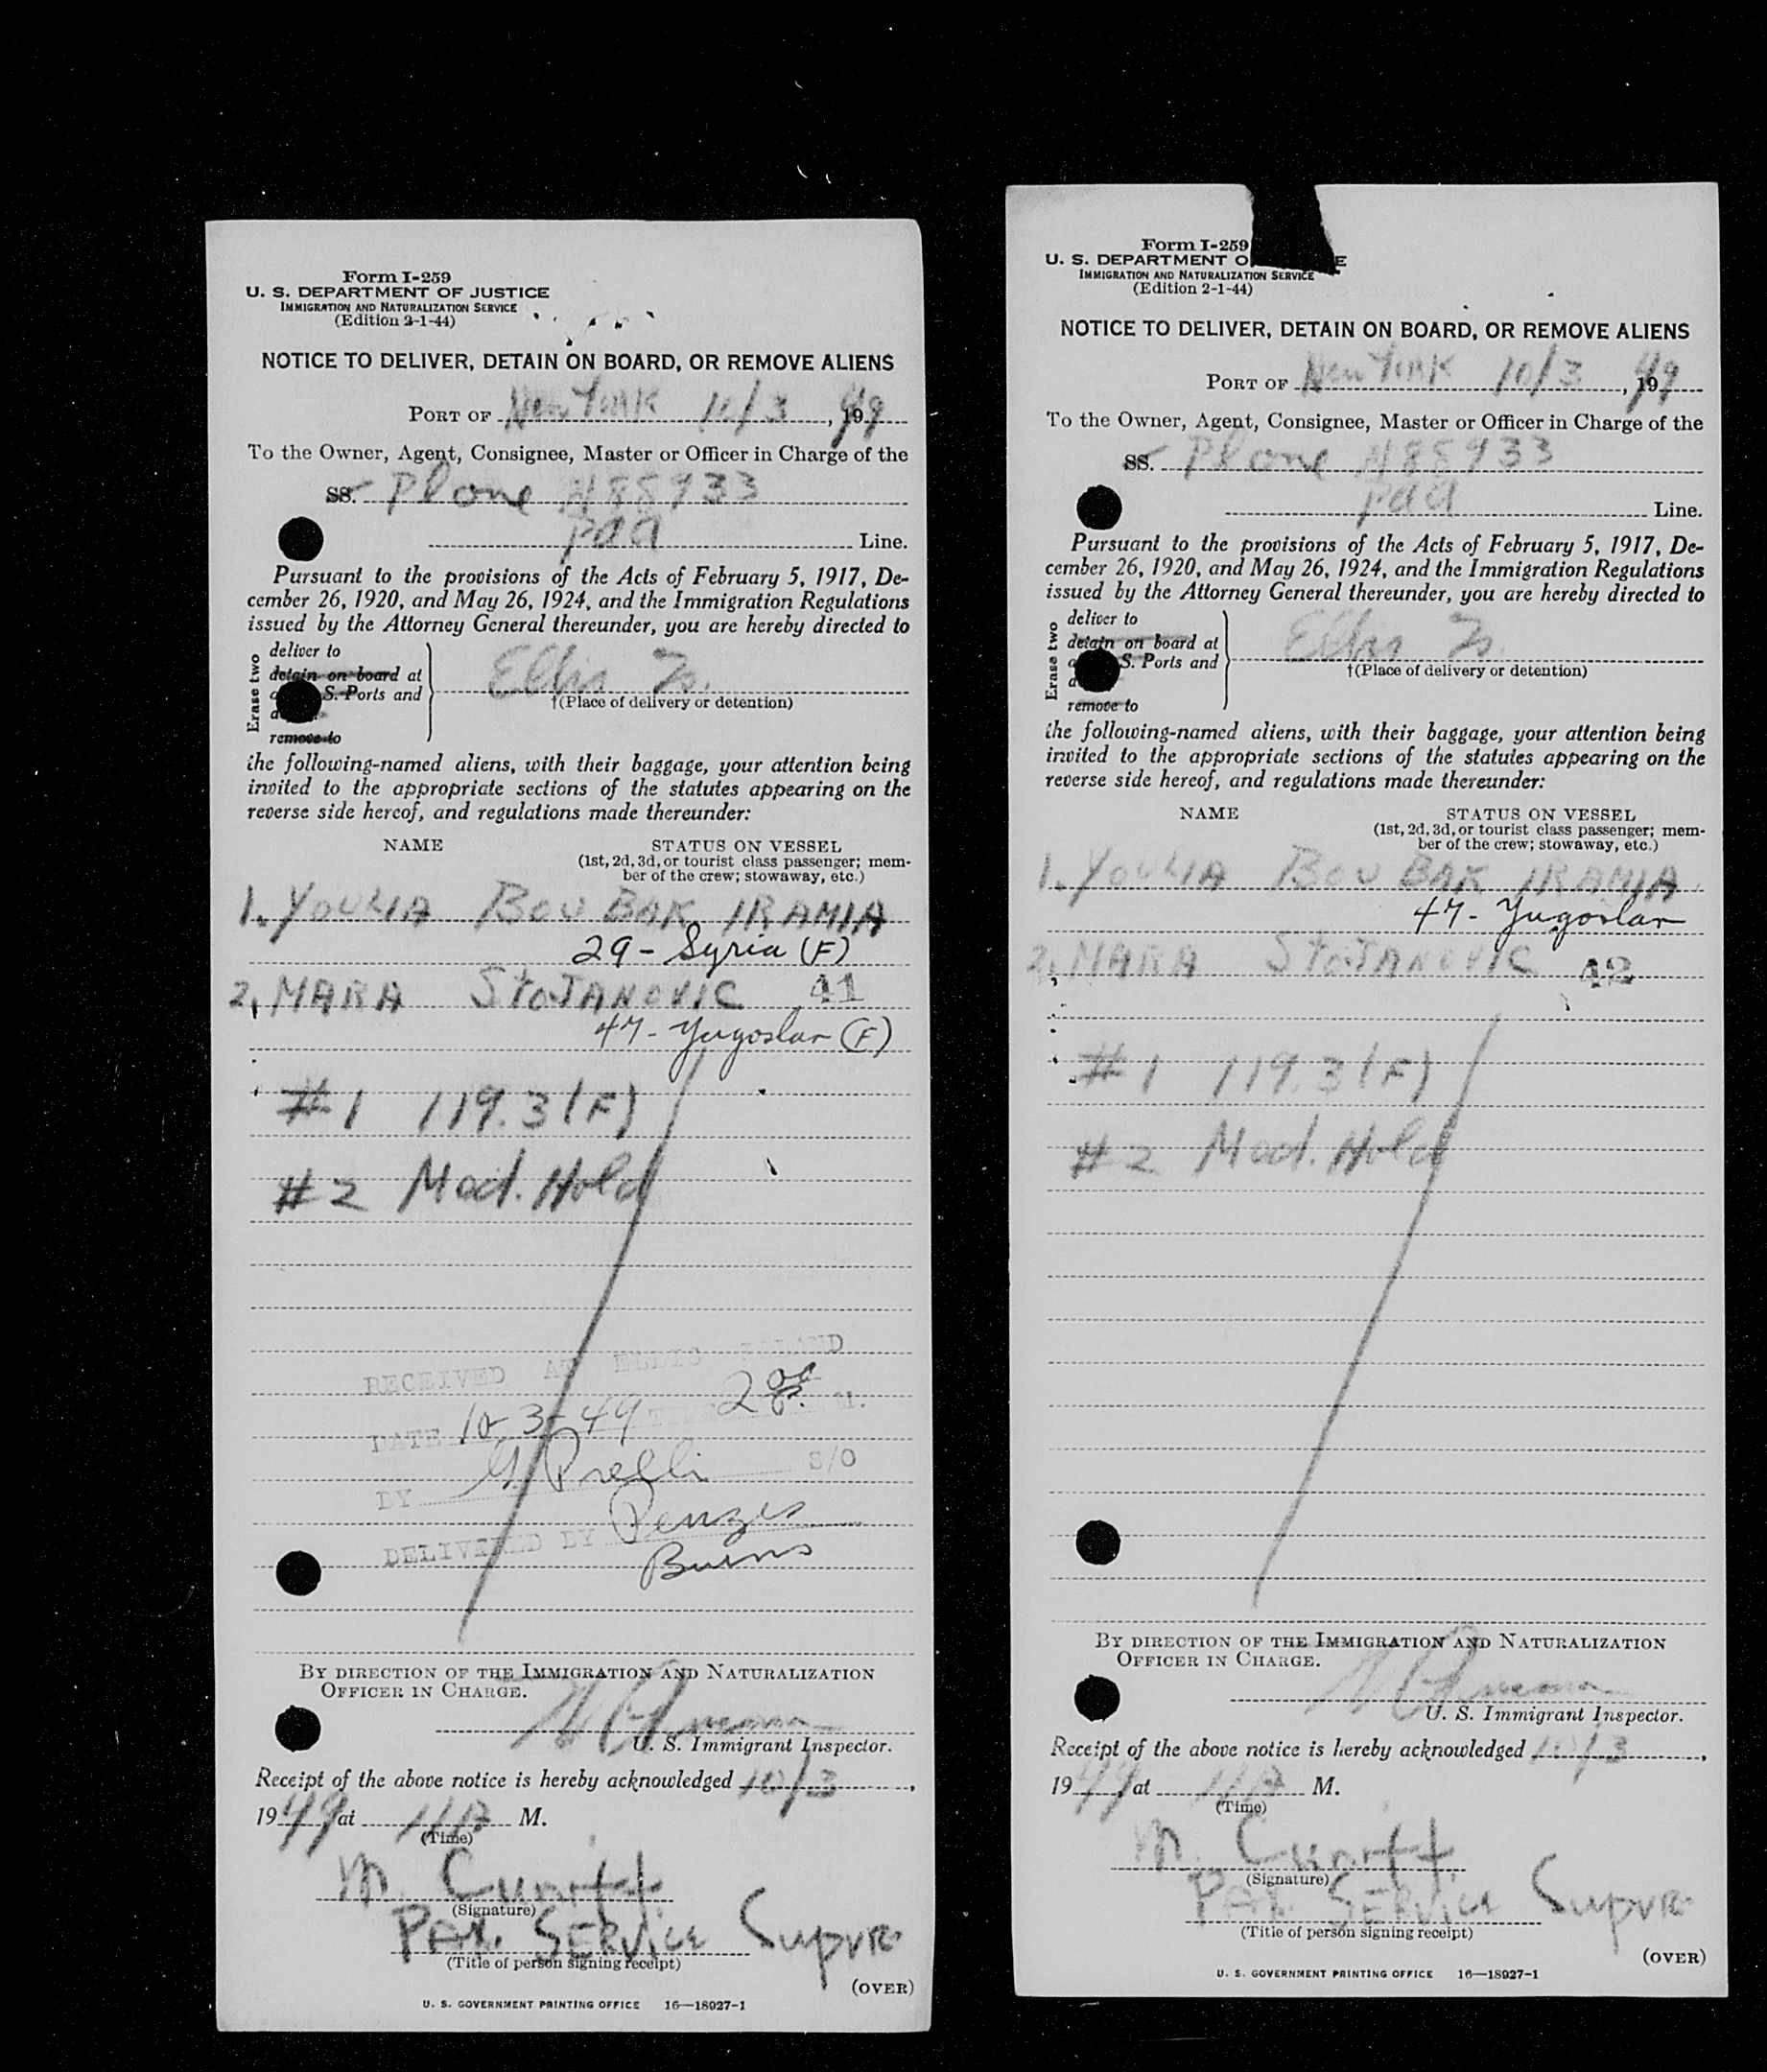 Form I-259
U. S. DEPARTMENT OF JUSTICE
IMMIGRATION AND NATURALIZATION SERVICE
(Edition 2-1-44)
NOTICE TO DELIVER, DETAIN ON BOARD, OR REMOVE ALIENS
PORT OF New York 10/3, 1949
To the Owner, Agent, Consignee, Master or Officer in Charge of the
SS. Plane N88933
PAA Line.
Pursuant to the provisions of the Acts of February 5, 1917, De-
cember 26, 1920, and May 26, 1924, and the Immigration Regulations
issued by the Attorney General thereunder, you are hereby directed to
Erase two
deliver to
detain on board at
S. Ports and
remove to
Ellis Is.
†(Place of delivery or detention)
the following-named aliens, with their baggage, your attention being
invited to the appropriate sections of the statutes appearing on the
reverse side hereof, and regulations made thereunder:
NAME STATUS ON VESSEL
(1st, 2d, 3d, or tourist class passenger; mem-
ber of the crew; stowaway, etc.)
1. YOULIA BOU BAK IRAMIA
29 - Syria (F)
2. MARA STOJANOVIC 41
47 - Yugoslav (F)
#1 119.3 (F)
#2 Med. Hold
RECEIVED AT ELLIS ISLAND
DATE 10-3-49 TIME 2 M.
BY S/O
DELIVERED BY
Burns
BY DIRECTION OF THE IMMIGRATION AND NATURALIZATION
OFFICER IN CHARGE.
U. S. Immigrant Inspector.
Receipt of the above notice is hereby acknowledged 10/3,
1949 at 11 A M.
(Time)
M.
(Signature)
SERVICE Supvr
(Title of person signing receipt)
(OVER)
U. S. GOVERNMENT PRINTING OFFICE 16—18927-1
Form I-259
U. S. DEPARTMENT O E
IMMIGRATION AND NATURALIZATION SERVICE
(Edition 2-1-44)
NOTICE TO DELIVER, DETAIN ON BOARD, OR REMOVE ALIENS
PORT OF New York 10/3, 1949
To the Owner, Agent, Consignee, Master or Officer in Charge of the
SS. Plane N88933
PAA Line.
Pursuant to the provisions of the Acts of February 5, 1917, De-
cember 26, 1920, and May 26, 1924, and the Immigration Regulations
issued by the Attorney General thereunder, you are hereby directed to
Erase two
deliver to
detain on board at
S. Ports and
remove to
Ellis Is.
†(Place of delivery or detention)
the following-named aliens, with their baggage, your attention being
invited to the appropriate sections of the statutes appearing on the
reverse side hereof, and regulations made thereunder:
NAME STATUS ON VESSEL
(1st, 2d, 3d, or tourist class passenger; mem-
ber of the crew; stowaway, etc.)
1. YOULIA BOU BAK IRAMIA
47 - Yugoslav
2. MARA STOJANOVIC 42
#1 119.3 (F)
#2 Med. Hold
BY DIRECTION OF THE IMMIGRATION AND NATURALIZATION
OFFICER IN CHARGE.
U. S. Immigrant Inspector.
Receipt of the above notice is hereby acknowledged 10/3,
1949 at 11 A M.
(Time)
M.
(Signature)
SERVICE Supvr
(Title of person signing receipt)
(OVER)
U. S. GOVERNMENT PRINTING OFFICE 16—18927-1